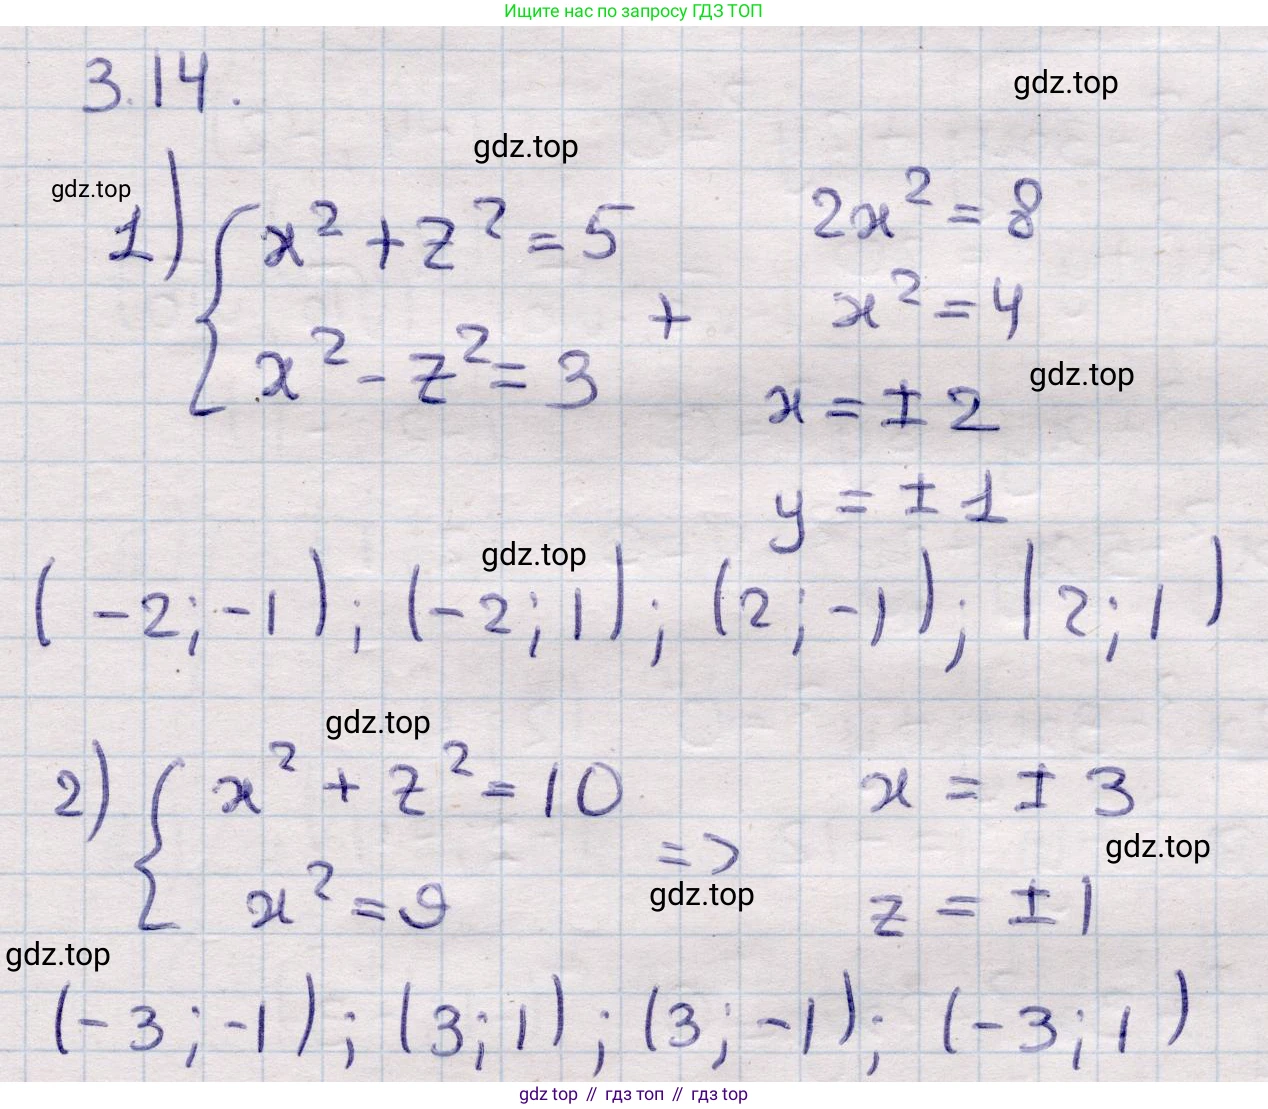 Ищите нас по запросу ГДЗ ТОП
3.14.
gdz.top
gdz.top
gdz.top
1) { x² + z² = 5
x² - z² = 3 +
2x² = 8
x² = 4
gdz.top
x = ± 2
y = ± 1
gdz.top
(-2; -1); (-2; 1); (2; -1); (2; 1)
gdz.top
2) { x² + z² = 10
x² = 9 =>
x = ± 3
gdz.top
gdz.top
z = ± 1
gdz.top
(-3; -1); (3; 1); (3; -1); (-3; 1)
gdz top // гдз топ // гдз top